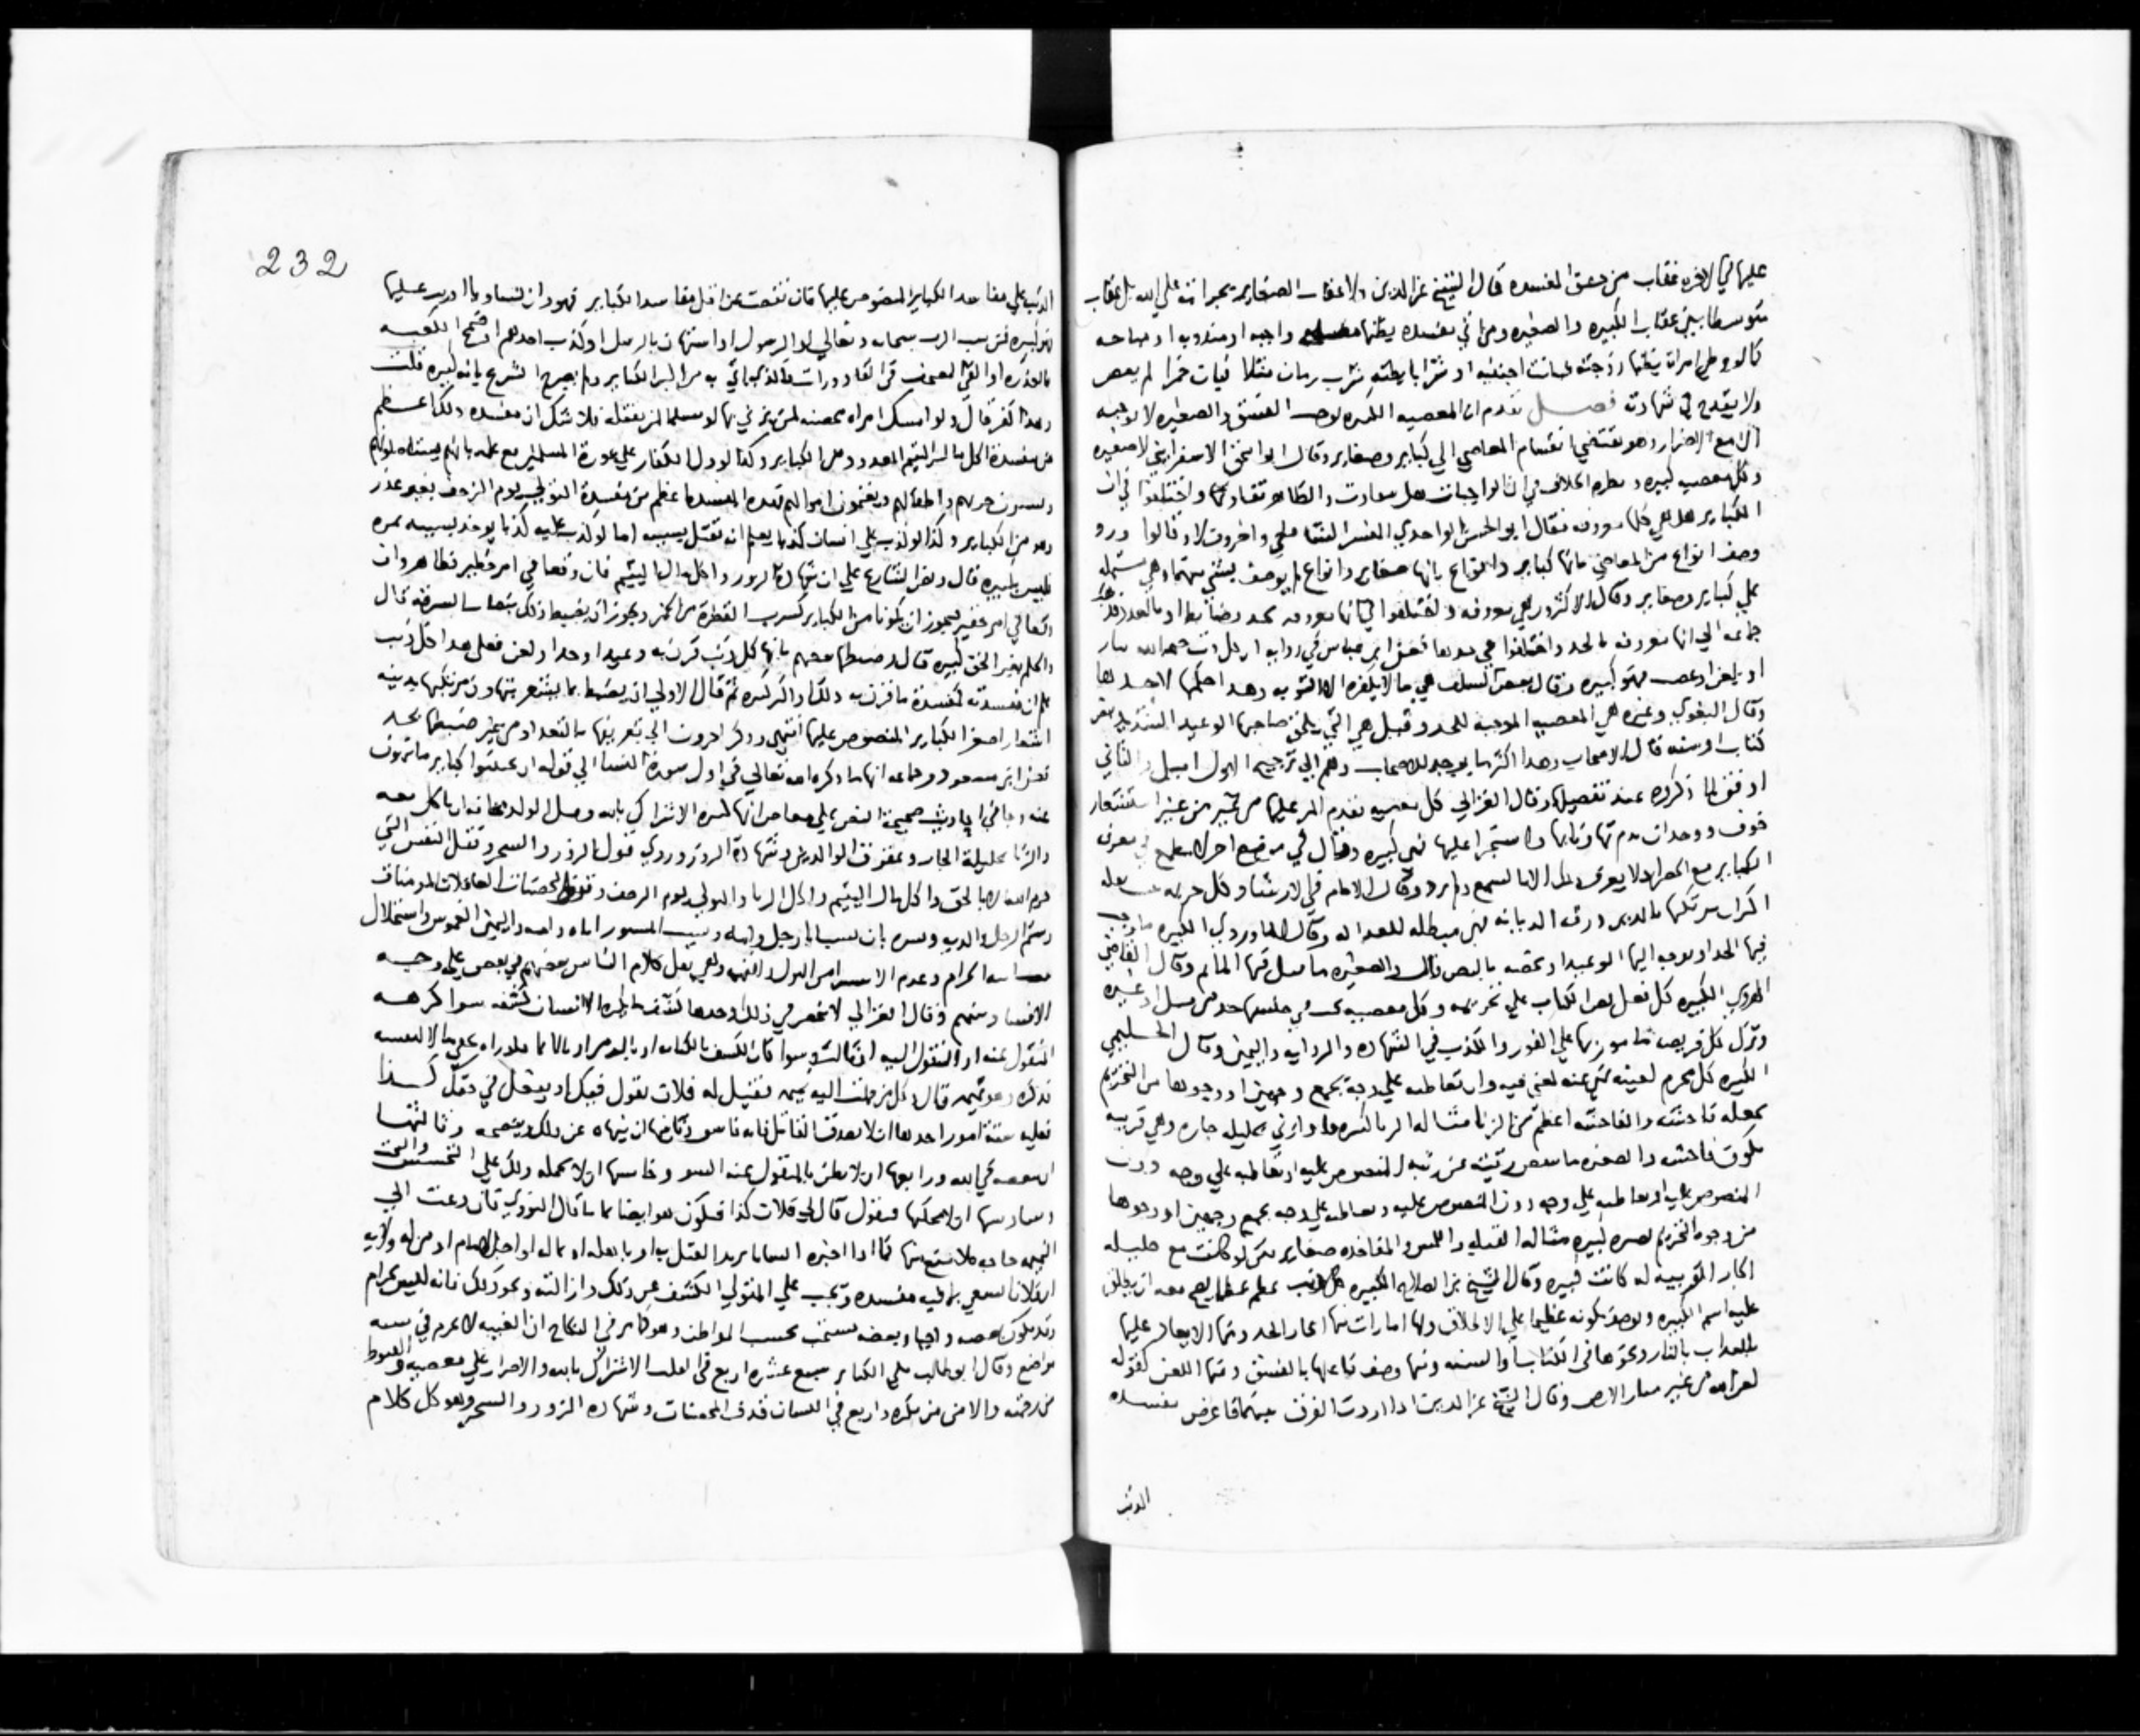 عليها في الاخره عقاب من حقق المفسده قال الشيخ عز الدين ولا عقاب الصغاير لجراته علي الله بل عقاب
متوسطا بين عقاب الكبيره والصغيره ومن اتي مفسده يظنها واجبه او مندوبه او مباحه
كالو وطي امراة يظنها زوجته اجنبيه او شرب خمرا لم يعص
ولا يقدح في شهادته فصل تقدم ان المعصيه الكبيره توجب الفسق والصغيره لا توجبه
الا مع الاصرار وهو يقتضي انقسام المعاصي الي كباير وصغاير وقال ابو اسحق الاسفرايني لا صغيره
وكل معصيه كبيره الخلاف في ان الواجبات هل والظاهر تفاوتها واختلفوا في ان
الكباير هل هي كلها معروفه فقال ابو الحسن الواحدي المفسر وقالوا ورد
وصف انواع من المعاصي بانها كباير وانواع بانها صغاير وانواع لم يوصف بشي منهما وهي مشتمله
علي كباير وصغاير وقال الاكثرون هي معروفه واختلفوا في انها معروفه بحد وضابط او بالعد
جماعه الي انها معروفه بالحد واختلفوا فعن ابن عباس في روايه انها كل ذنب ختمه الله بنار
او لعن او غضب فهو كبيره وقال بعض السلف هي ما لا يكفره الا التوبه وهذا
وقال البغوي وغيره هي المعصيه الموجبه للحد وقيل هي التي يلحق صاحبها الوعيد الشديد بنص
كتاب او سنه قال الاصحاب وهذا اكثر ما يوجد للاصحاب وهم الي ترجيح الاول اميل والثاني
اوفق لما ذكروه عند تفصيلها وقال الغزالي كل معصيه يقدم المر عليها من غير استشعار
خوف ووجدان ندم تهاونا بها واستجرا عليها فهي كبيره وقال في موضع اخر لا مطمع في معرفة
الكباير مع الحصر اذ لا يعرف ذلك الا بالسمع ولم يرد وقال الامام في الارشاد وكل جريمه
اكتراث مرتكبها بالدين ورقه الديانه فهي مبطله للعداله وقال الماوردي الكبيره ما وجب
فيها الحد او توجه اليها الوعيد والصغيره ما قل فيها الماثم وقال القاضي
الهروي الكبيره كل فعل نص الكتاب علي تحريمه وكل معصيه في جنسها حد من قتل او غيره
وترك كل فريضه مامور بها علي الفور والكذب في الشهاده والروايه واليمين وقال الحليمي
الكبيره كل محرم لعينه منهي عنه لمعني فيه وان تعاطيه علي وجه يجمع وجهين او وجوها من التحريم
يجعله فاحشه والفاحشه اعظم من الزنا مثاله الزنا كبيره ولو زني بحليله جاره وهي قريبه
تكون فاحشه والصغيره ما رتبته عن رتبه المنصوص عليه او تعاطيه علي وجه دون
المنصوص عليه او تعاطيه علي وجه دون المنصوص عليه وتعاطيه علي وجه يجمع وجهين او وجوها
من وجوه التحريم تصيره كبيره مثاله القبله واللمس والمفاخذه صغاير لو كانت مع حليله
الجار القريبه له كانت كبيره وقال الشيخ ابن الصلاح الكبيره كل ذنب عظم عظما يصح معه ان يطلق
عليه اسم الكبيره ويوصف بكونه عظيما علي الاطلاق ولها امارات منها ايجاب الحد ومنها الايعاد عليها
بالعذاب بالنار ونحوها في الكتاب او السنه ومنها وصف فاعلها بالفسق ومنها اللعن كقوله
لعن الله من غير منار الارض وقال الشيخ عز الدين اذا اردت الفرق بينهما فاعرض مفسده
الذنب
232
الذنب علي مفاسد الكباير المنصوص عليها فان نقصت عن اقل مفاسد الكباير فهو وان تساوت او ادبت عليها
فهو كبيره فمن سب الرب سبحانه وتعالي او الرسول او استهان بالرسل او كذب احدهم او ضمخ الكعبه
بالعذره او القي المصحف في القاذورات فالذي ياتي به من اكبر الكباير ولم يصرح الشرع بانه كبيره قلت
وهذا كفر قال ولو امسك امراه محصنه لمن يزني بها او مسلما لمن يقتله فلا شك ان مفسده ذلك اعظم
من مفسدة اكل مال اليتيم المعدود من الكباير وكذا لو دل الكفار علي عورة المسلمين مع علمه بانهم يستاصلونهم
ويسبون حريمهم واطفالهم ويغنمون اموالهم فهذه المفسده اعظم من مفسدة التولي يوم الزحف بغير عذر
وهو من الكباير وكذا لو كذب علي انسان كذبا يعلم انه يقتل بسببه اما لو كذب عليه كذبا يوخذ بسببه تمره
فليس بكبيره قال ونص الشارع علي ان شهادة الزور واكل مال اليتيم فان وقعا في امر خطير فظاهر وان
وقعا في امر حقير فيجوز ان يكونا من الكباير كشرب القطرة من الخمر ويجوز ان يضبط ذلك بنصاب السرقه قال
والحكم بغير الحق كبيره قال وضبطها بعضهم بانها كل ذنب قرن به وعيد او حد او لعن فعلي هذا كل ذنب
علم ان مفسدته كمفسدة ما قرن به ذلك او اكثر كبيره ثم قال الاولي ان يضبط بما يشعر بتهاون مرتكبها بدينه
اشعار اصغر الكباير المنصوص عليها انتهي وذكر اخرون الي تعريفها بالتعداد من غير ضبطها بحد
فعن ابن مسعود وجماعه انها ما ذكره الله تعالي في اول سورة النسا الي قوله ان تجتنبوا كباير ما تنهون
عنه وجا في احاديث صحيحة النص علي الاشراك بالله وقتل الولد مخافة ان ياكل معه
والزنا بحليلة الجار وعقوق الوالدين وشهادة الزور وروي قول الزور والسحر وقتل النفس التي
حرم الله الا بالحق واكل مال اليتيم واكل الربا والتولي يوم الزحف وقذف المحصنات الغافلات المومنات
وشتم الرجل والديه وفسره بان يسب ابا رجل وامه فيسب المسبوب اباه وامه واليمين الغموس واستحلال
الحرام وعدم الاستبرا من البول والنميمه وهي نقل كلام الناس بعضهم في بعض علي وجه
الافساد بينهم وقال الغزالي لا تنحصر في ذلك وحدها كشف ما يكره الانسان كشفه سوا كرهه
المنقول عنه او المنقول اليه او ثالث وسوا كان الكشف بالكتابه او بالرمز او بالايما فلو راه يخفي مالا لنفسه
فذكره فهو نميمه قال وكل من حملت اليه نميمه فقيل له فلان يقول فيك او يفعل في حقك كذا
فعليه ستة امور احدها ان لا يصدق القايل فانه فاسق وثانيها ان ينهاه عن ذلك وينصحه وثالثها
ان يبغضه في الله ورابعها ان لا يظن بالمنقول عنه السو وخامسها ان لا يحمله ذلك علي التجسس والبحث
وسادسها ان لا يحكيها فيقول قال لي فلان كذا فيكون هو ايضا نماما قال النووي فان دعت الي
النميمه حاجه فلا منع منها كما اذا اخبره ان انسانا يريد القتل به او باهله او بماله او اخبر الامام او من له ولايه
ان فلانا يسعي بما فيه مفسده ويجب علي المتولي الكشف عن ذلك وازالته ونحو ذلك فانه ليس بحرام
وقد يكون بعضه واجبا وبعضه مستحب بحسب المواطن وهو كما مر في النكاح ان الغيبه لا تحرم في سته
مواضع وقال ابو طالب المكي الكباير سبع عشره اربع في القلب الاشراك بالله والاصرار علي معصيه والقنوط
من رحمته والامن من مكره واربع في اللسان قذف المحصنات وشهادة الزور والسحر وهو كل كلام